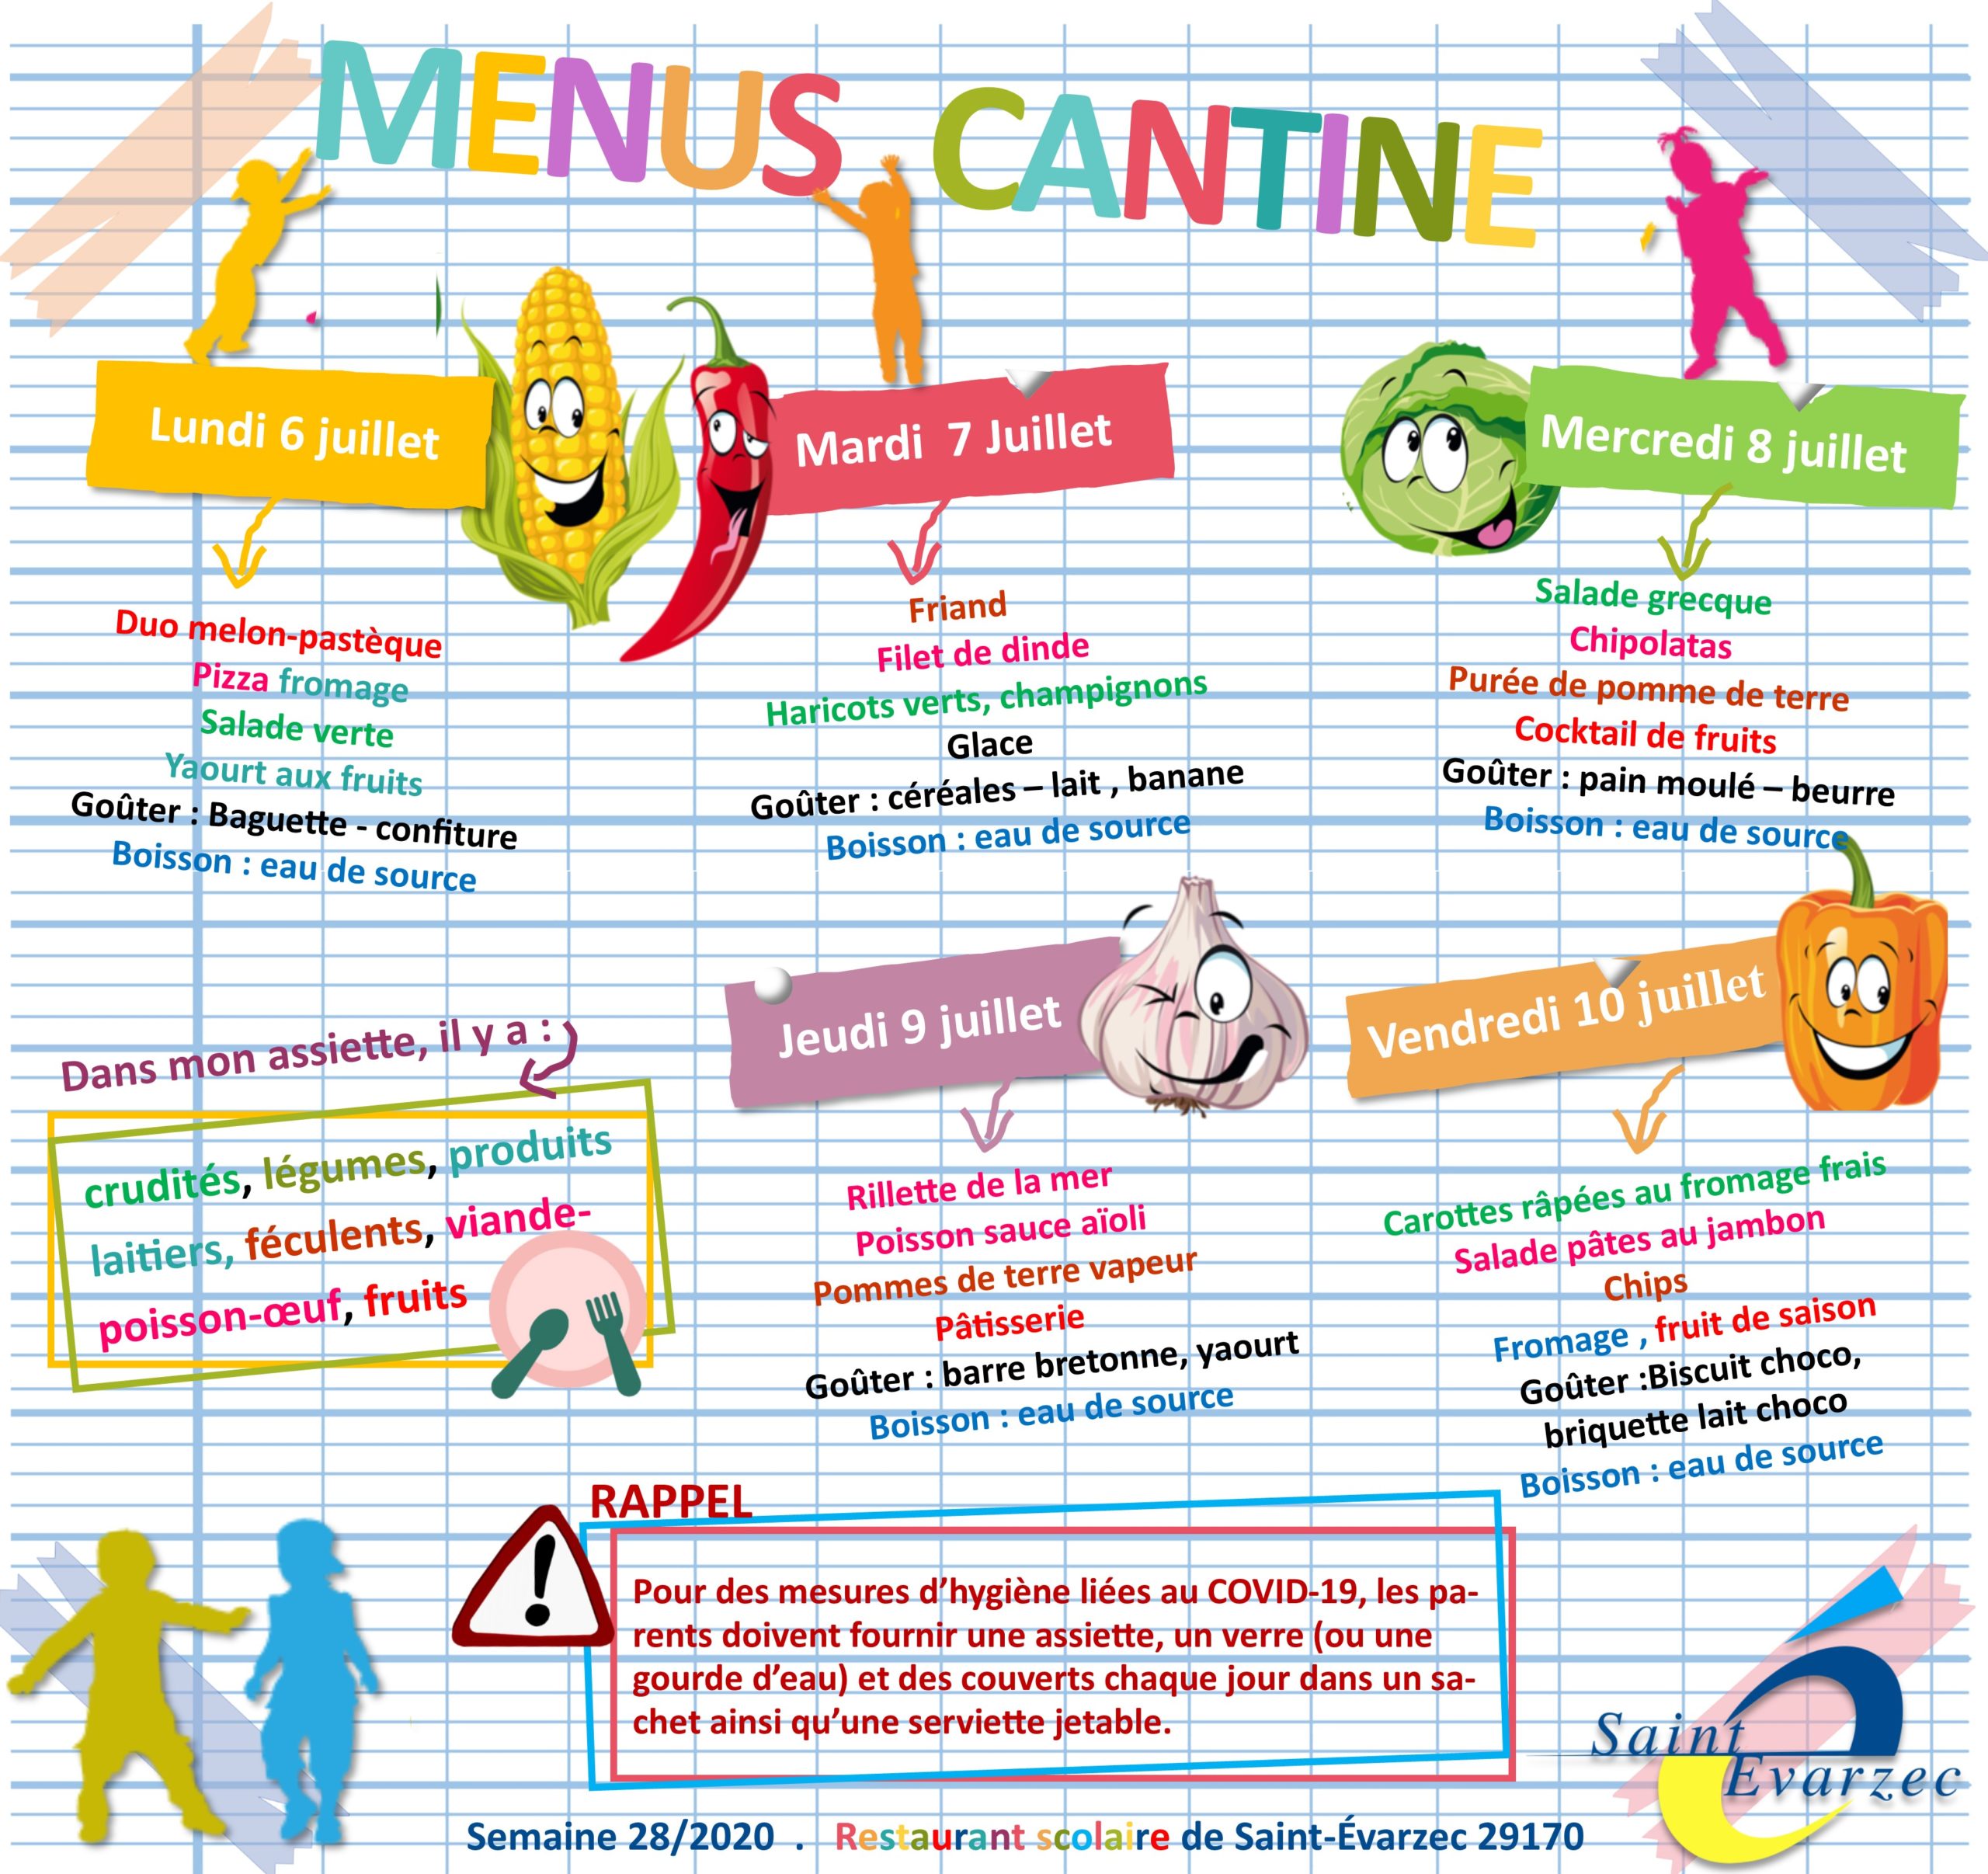 MENUS CANTINE
Lundi 6 juillet
Duo melon-pastèque
Pizza fromage
Salade verte
Yaourt aux fruits
Goûter : Baguette - confiture
Boisson : eau de source
Mardi 7 Juillet
Friand
Filet de dinde
Haricots verts, champignons
Glace
Goûter : céréales – lait , banane
Boisson : eau de source
Mercredi 8 juillet
Salade grecque
Chipolatas
Purée de pomme de terre
Cocktail de fruits
Goûter : pain moulé – beurre
Boisson : eau de source
Dans mon assiette, il y a :
crudités, légumes, produits
laitiers, féculents, viande-
poisson-œuf, fruits
Jeudi 9 juillet
Rillette de la mer
Poisson sauce aïoli
Pommes de terre vapeur
Pâtisserie
Goûter : barre bretonne, yaourt
Boisson : eau de source
Vendredi 10 juillet
Carottes râpées au fromage frais
Salade pâtes au jambon
Chips
Fromage , fruit de saison
Goûter :Biscuit choco,
briquette lait choco
Boisson : eau de source
RAPPEL
!
Pour des mesures d’hygiène liées au COVID-19, les pa-
rents doivent fournir une assiette, un verre (ou une
gourde d’eau) et des couverts chaque jour dans un sa-
chet ainsi qu’une serviette jetable.
Saint
Evarzec
Semaine 28/2020 . Restaurant scolaire de Saint-Évarzec 29170